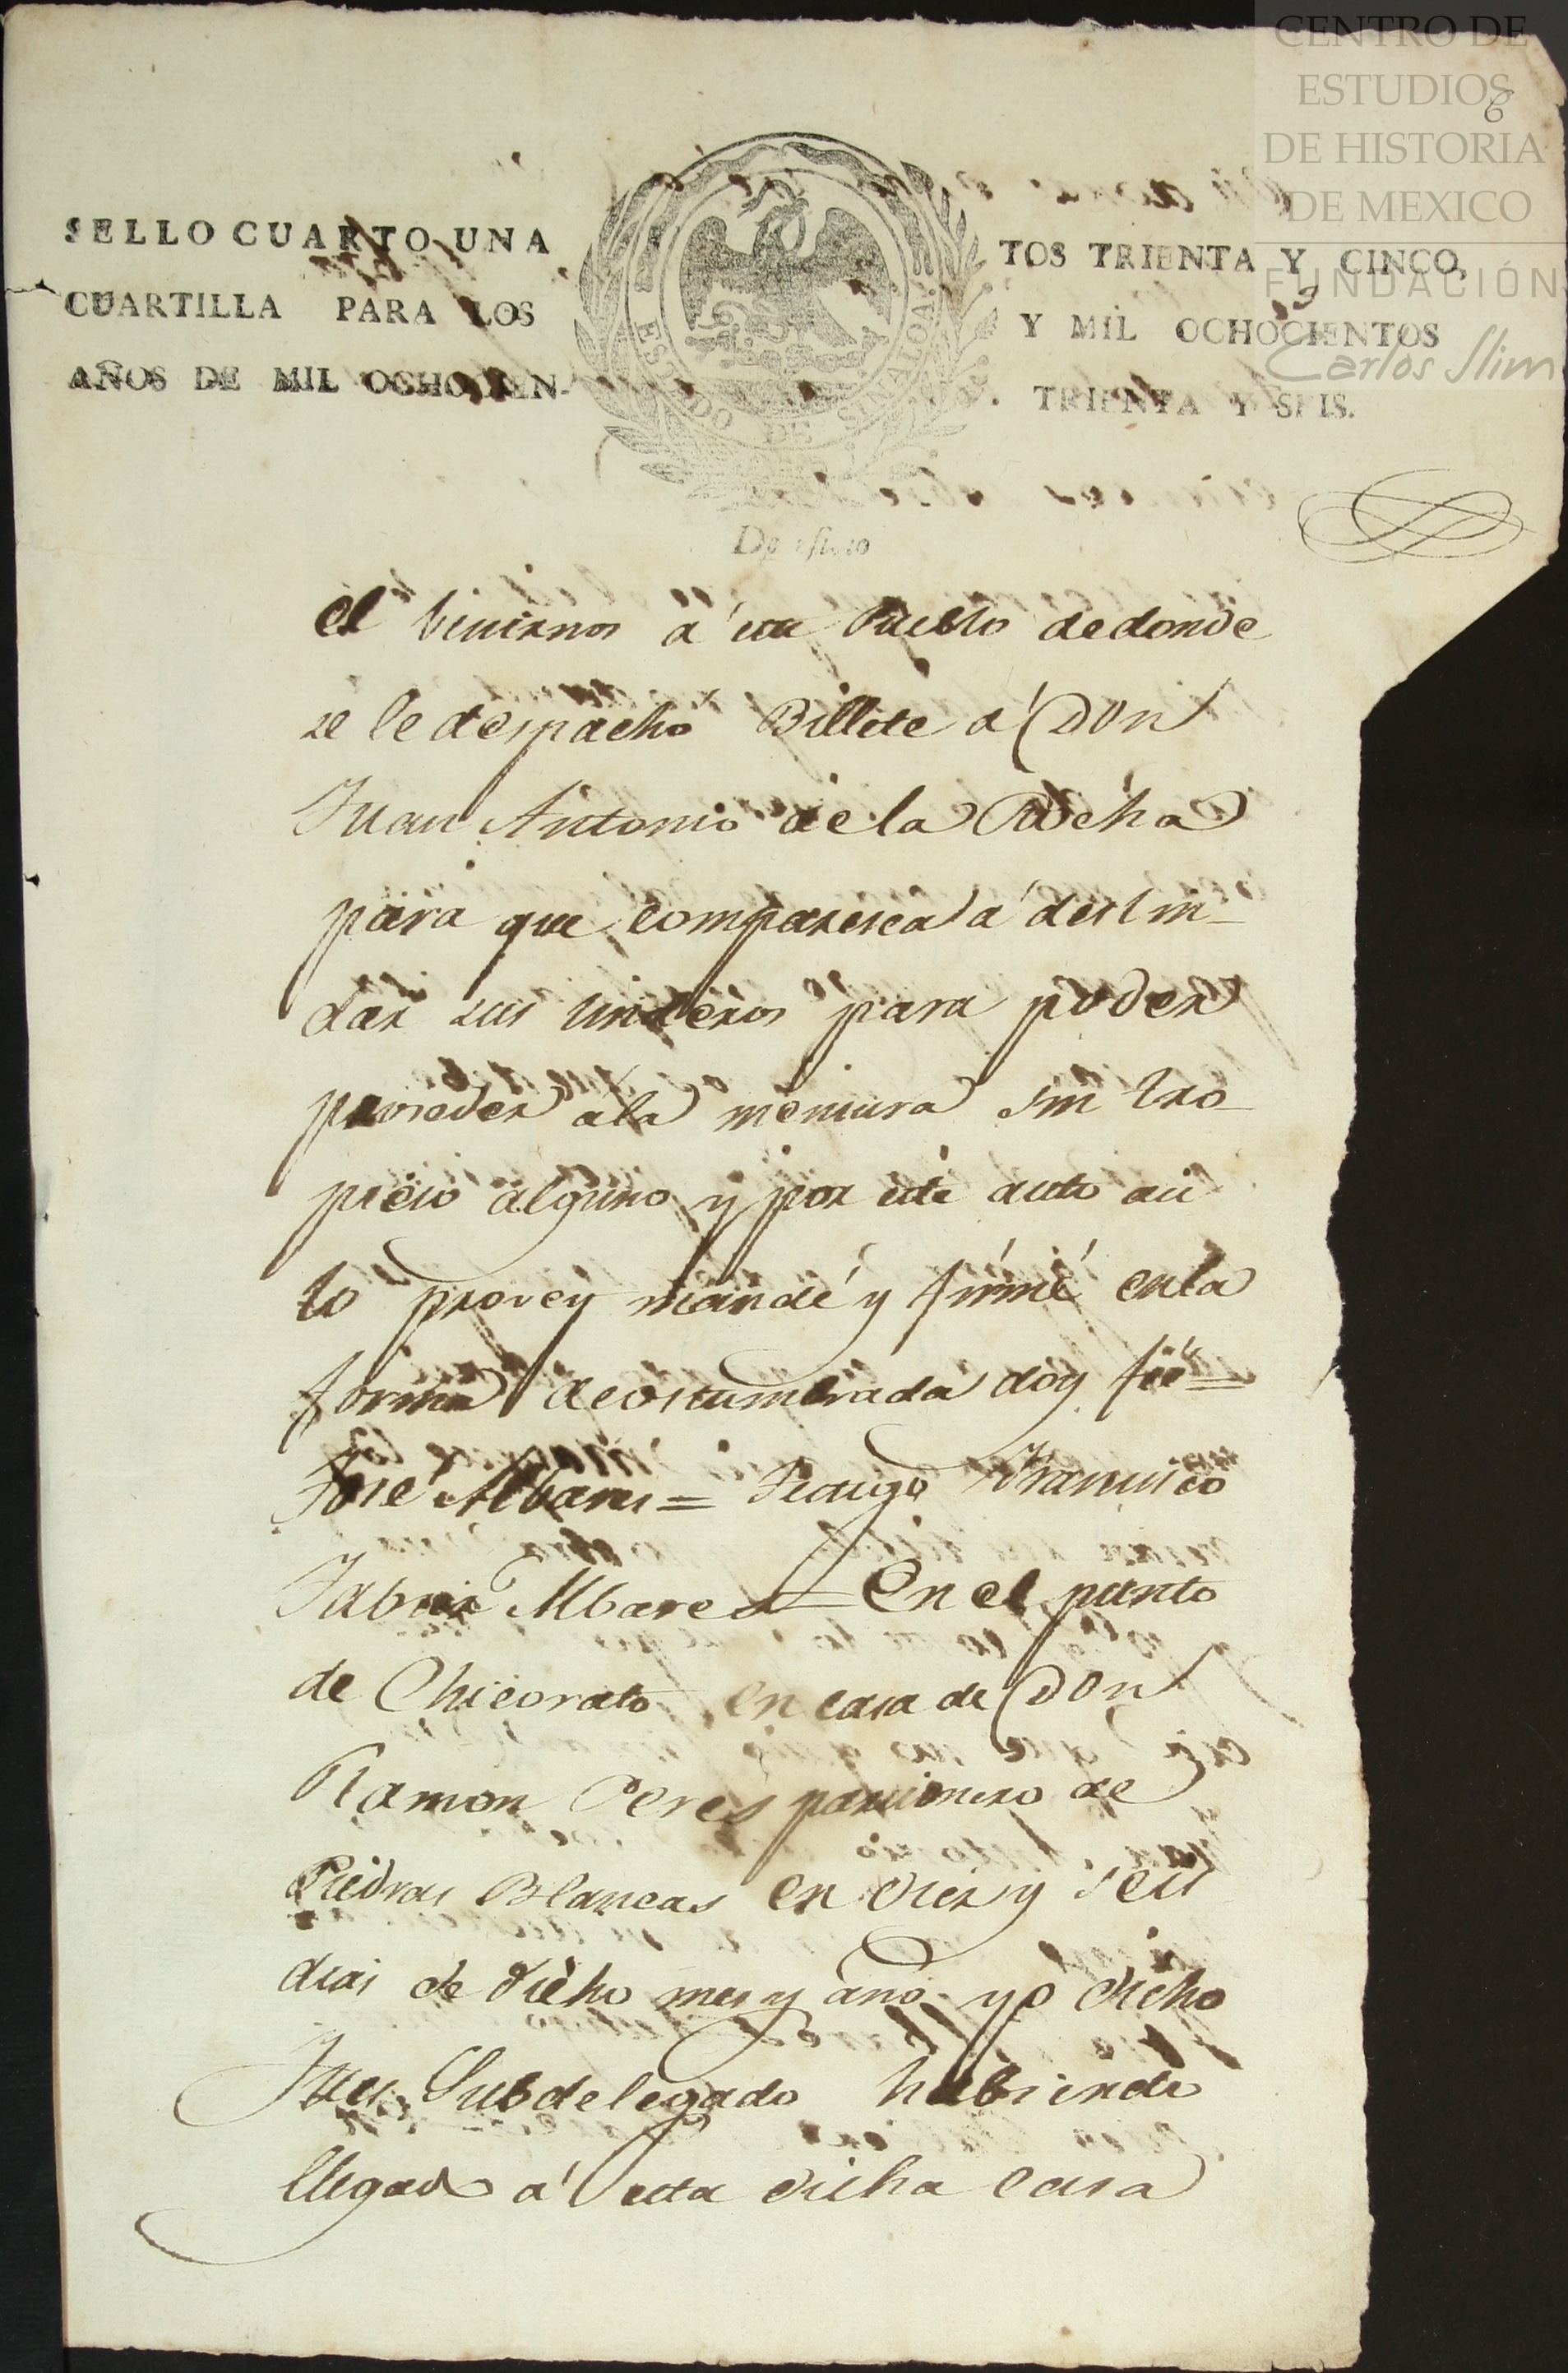 CENTRO DE
ESTUDIOS
DE HISTORIA
DE MEXICO
FUNDACIÓN
Carlos Slim
6
SELLO CUARTO UNA
CUARTILLA PARA LOS
AÑOS DE MIL OCHOCIEN-
ESTADO DE SINALOA.
TOS TRIENTA Y CINCO,
Y MIL OCHOCIENTOS
TRIENTA Y SEIS.
el benirnos á este Pueblo dedonde
se le despachó Billete á Don
Juan Antonio de la Rocha
para que comparesca á deslin-
dar sus linderos para poder
proceder ala mensura sin tro-
pieso alguno y por este auto asi
lo provey mandé y firmé enla
forma acostumbrada doy feé=
José Albares = Testigo Francisco
Jabier Albares = En el punto
de Chicorato en casa de Don
Ramon Peres parcionero de
Piedras Blancas en dies y seis
dias de dicho mes y año yo dicho
Jues Subdelegado habiendo
llegado á esta dicha casa